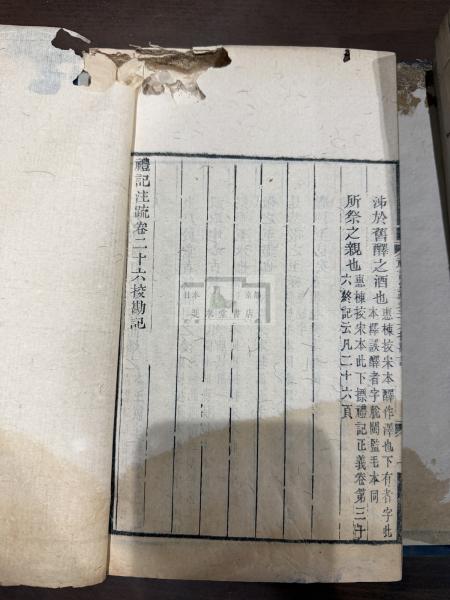 涉於舊醳之酒也惠棟挍宋本醳作澤也下有者字此
本釋誤醳者字脫閩監毛本同
所祭之親也惠棟挍宋本此下標禮記正義卷第三十
六終記云凡二十六頁
禮記注疏卷二十六挍勘記
日本
京都
堂書店